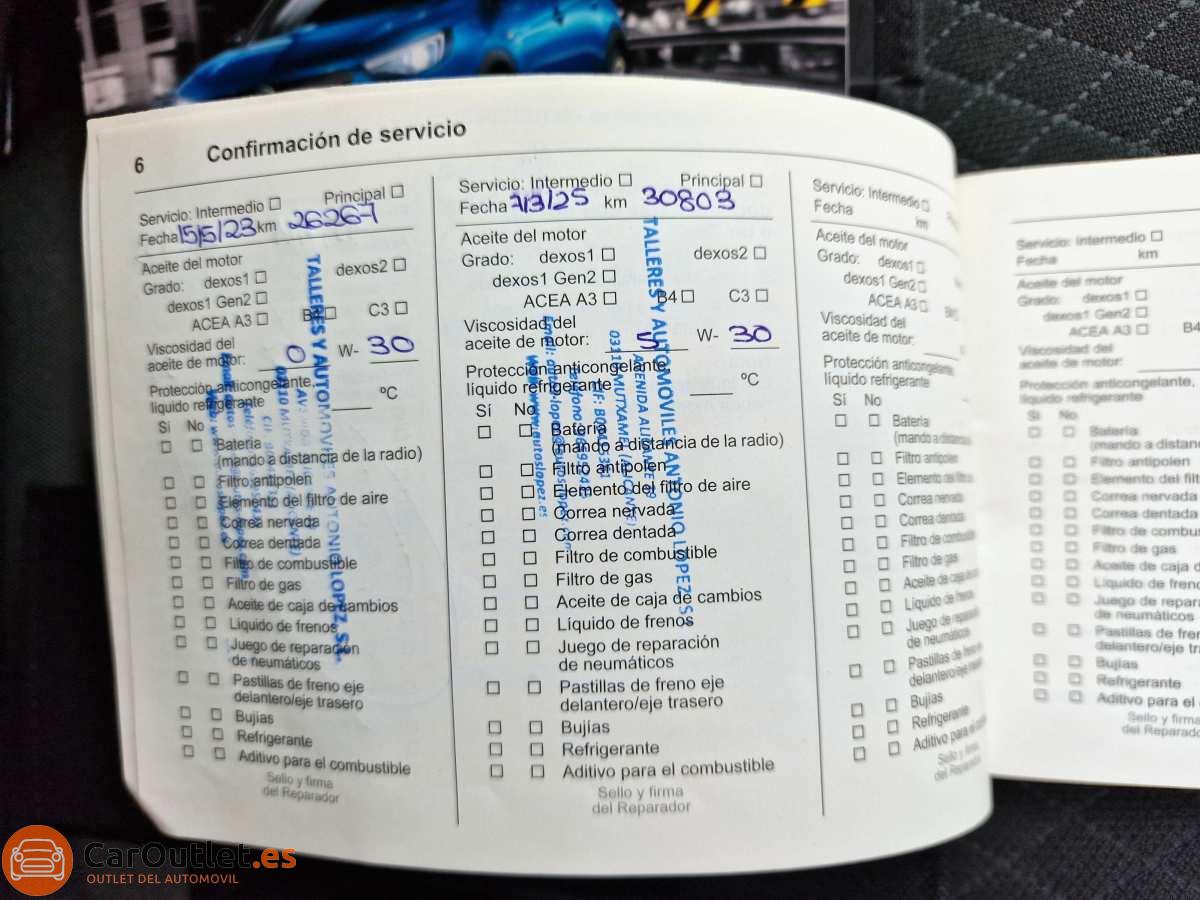 6 Confirmación de servicio
Servicio: Intermedio Principal
Fecha 15/5/23 km 26267
Aceite del motor
Grado: dexos1 dexos2
dexos1 Gen2
ACEA A3 B4 C3
Viscosidad del
aceite de motor: 0 W- 30
Protección anticongelante,
líquido refrigerante ºC
Sí No
Batería
(mando a distancia de la radio)
Filtro antipolen
Elemento del filtro de aire
Correa nervada
Correa dentada
Filtro de combustible
Filtro de gas
Aceite de caja de cambios
Líquido de frenos
Juego de reparación
de neumáticos
Pastillas de freno eje
delantero/eje trasero
Bujías
Refrigerante
Aditivo para el combustible
Sello y firma
del Reparador
TALLERES Y AUTOMOVILES ANTONIO LOPEZ, SL
Servicio: Intermedio Principal
Fecha 7/3/25 km 30803
Aceite del motor
Grado: dexos1 dexos2
dexos1 Gen2
ACEA A3 B4 C3
Viscosidad del
aceite de motor: 5 W- 30
Protección anticongelante,
líquido refrigerante ºC
Sí No
Batería
(mando a distancia de la radio)
Filtro antipolen
Elemento del filtro de aire
Correa nervada
Correa dentada
Filtro de combustible
Filtro de gas
Aceite de caja de cambios
Líquido de frenos
Juego de reparación
de neumáticos
Pastillas de freno eje
delantero/eje trasero
Bujías
Refrigerante
Aditivo para el combustible
Sello y firma
del Reparador
TALLERES Y AUTOMOVILES ANTONIO LOPEZ, SL
AVENIDA ALICANTE
MUTXAMEL (ALICANTE)
www.autoslopez.es
Servicio: Intermedio
Fecha km
Aceite del motor
Grado: dexos1
dexos1 Gen2
ACEA A3
Viscosidad del
aceite de motor:
Protección anticongelante,
líquido refrigerante
Sí No
Batería
(mando a distancia
Filtro antipolen
Elemento del filtro
Correa nervada
Correa dentada
Filtro de combustible
Filtro de gas
Aceite de caja de
Líquido de frenos
Juego de reparación
de neumáticos
Pastillas de freno
delantero/eje
Bujías
Refrigerante
Aditivo para el
Sello y
del
Servicio: Intermedio
Fecha km
Aceite del motor
Grado: dexos1
dexos1 Gen2
ACEA A3 B4
Viscosidad del
aceite de motor:
Protección anticongelante,
líquido refrigerante
Sí No
Batería
(mando a distan
Filtro antipolen
Elemento del filt
Correa nervada
Correa dentada
Filtro de combus
Filtro de gas
Aceite de caja d
Líquido de freno
Juego de repar
de neumáticos
Pastillas de fren
delantero/eje tra
Bujías
Refrigerante
Aditivo para el
Sello y firma
del Reparad
CarOutlet.es
OUTLET DEL AUTOMOVIL